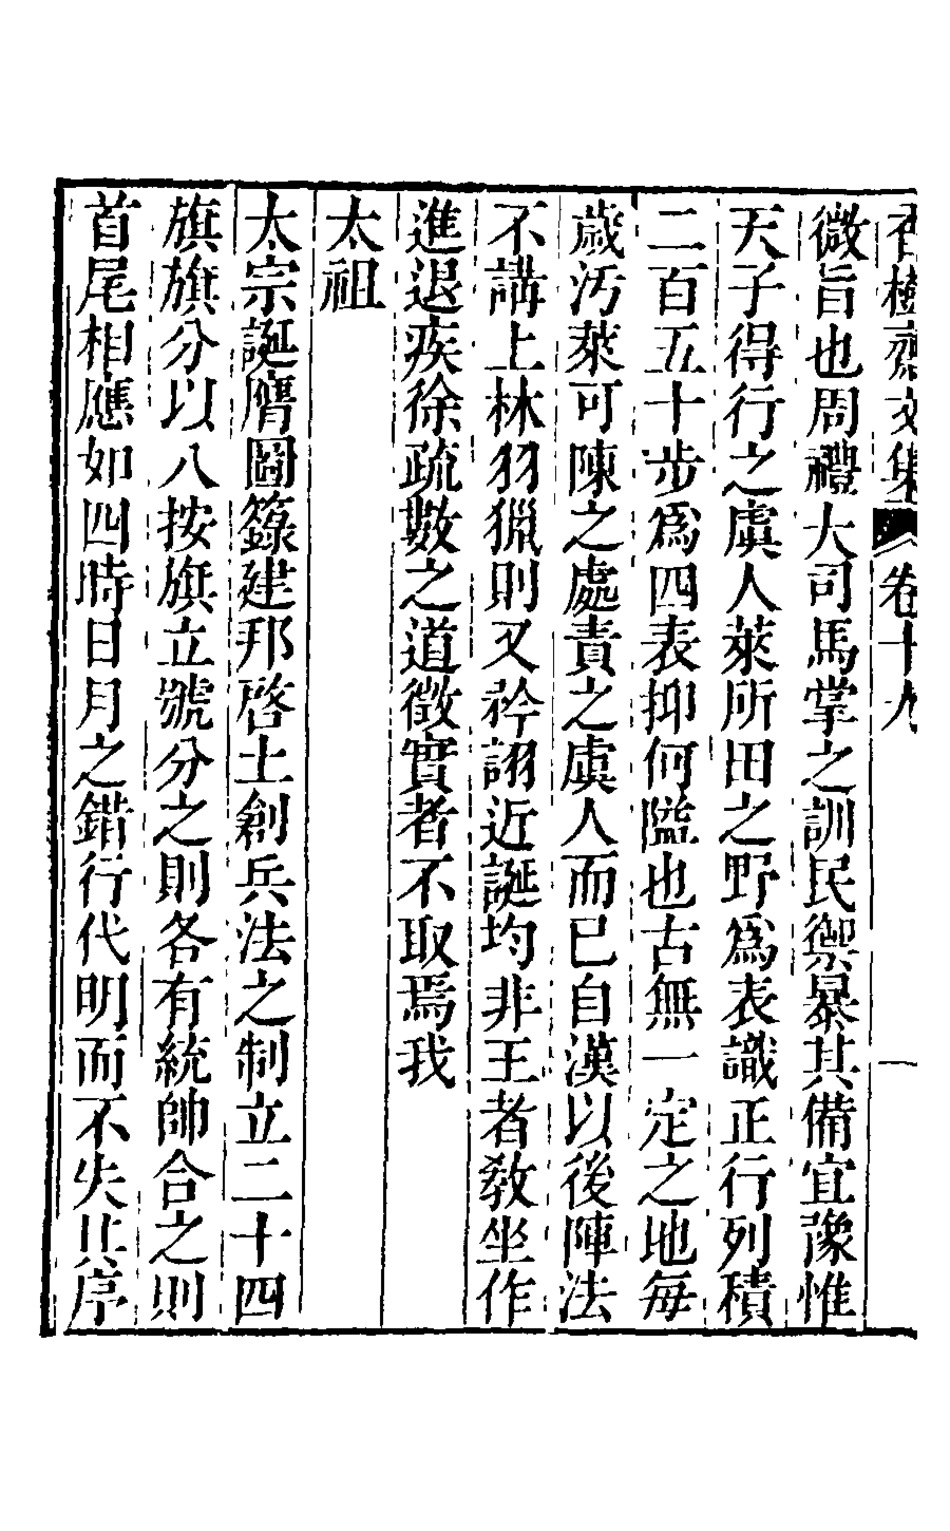 香樹齋文集 卷十九 一
微旨也周禮大司馬掌之訓民禦暴其備宜豫惟
天子得行之虞人萊所田之野爲表識正行列積
二百五十步爲四表抑何隘也古無一定之地每
歲汚萊可陳之處責之虞人而已自漢以後陣法
不講上林羽獵則又矜詡近誕均非王者敎坐作
進退疾徐疏數之道徵實者不取焉我
太祖
太宗誕膺圖籙建邦啓土創兵法之制立二十四
旗旗分以八按旗立號分之則各有統帥合之則
首尾相應如四時日月之錯行代明而不失其序